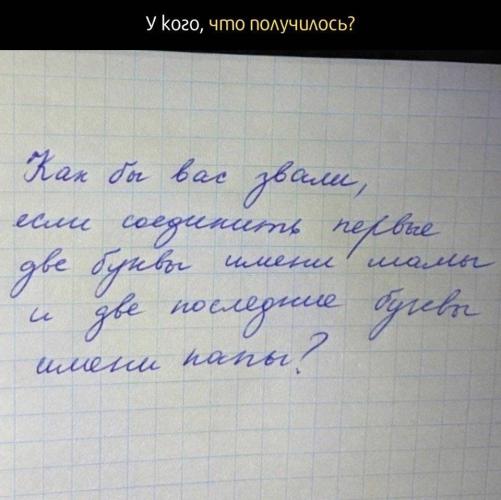 У кого, что получилось?
Как бы вас звали,
если соединить первые
две буквы имени мамы
и две последние буквы
имени папы?